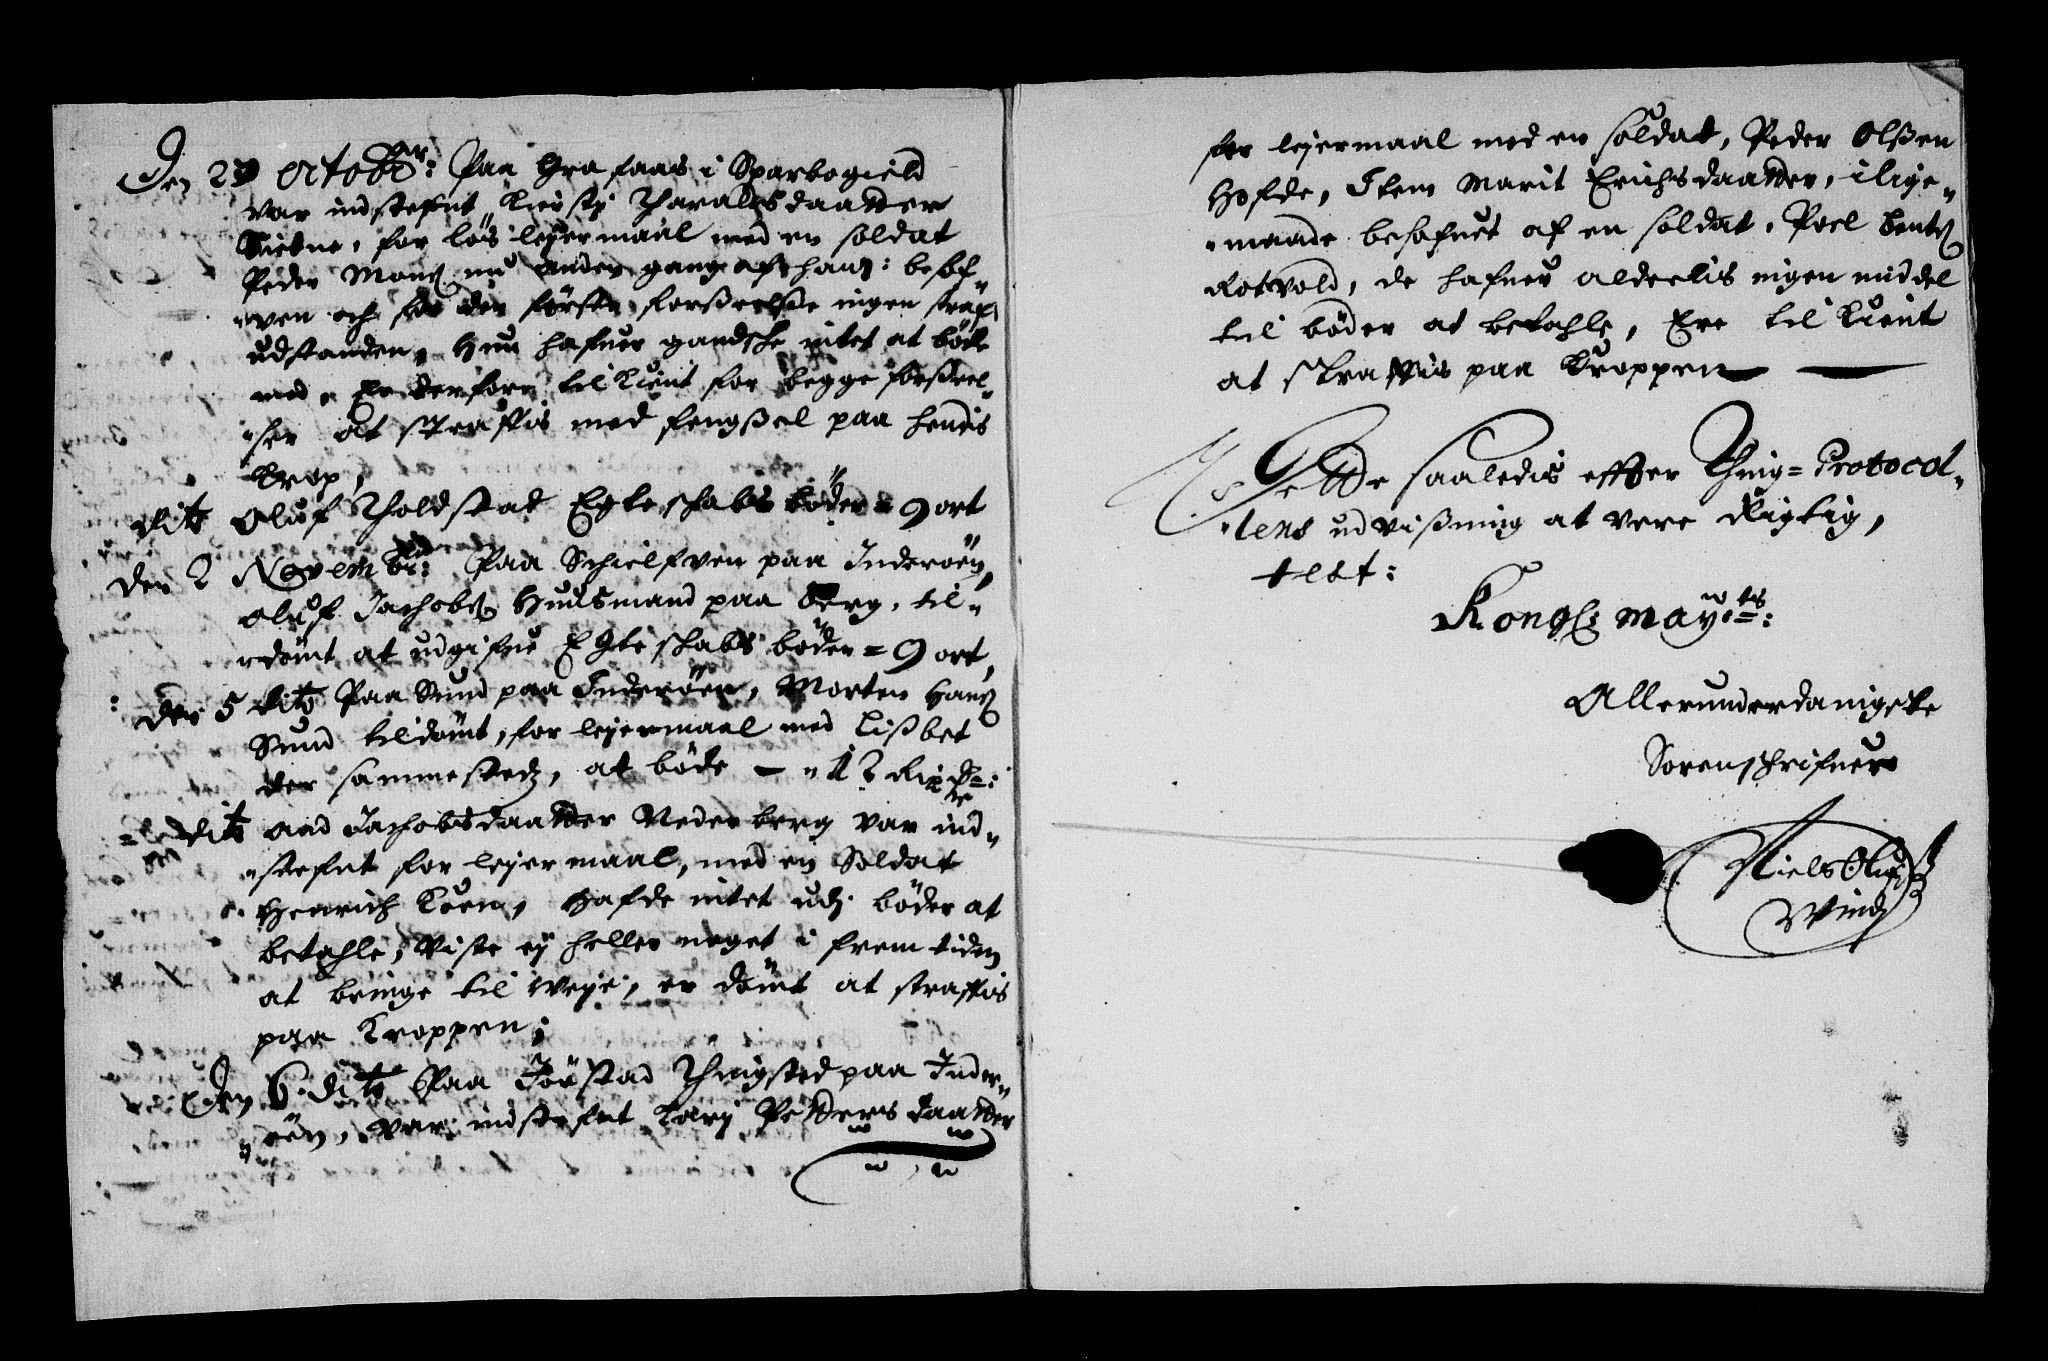 Den 29 octobr: Paa Grafaas i Sparbogield
var indstefnt Kiersty Tharaldsdaatter
for løs leyermaal med en soldat
Peder Monß nu anden gang af ham: besof-
"ven och for den første forseelße ingen straf
udstanden, Hun hafuer gandske intet at bøde
med, Er derforre til Kient for begge forseel-
"ser at straffis med fengßel paa hendis
Krop,
dito Oluf Tholdstad Egteskabs bøder = 9 ort
den 2 Novembr: Paa Schielfven paa Inderøen,
Oluf Jachobß Huusmand paa Berg, til-
"dømt at udgifue Egteskabs bøder = 9 ort,
den 5 dito Paa Sund paa Inderøen, Morten Hanß
Sund tildømt, for leyermaal med Lisbet
der sammestedz, at bøde — " 12 Rixdr:
= dito Aad Jachobsdaatter Nederberg var ind-
"stefnt for leyermaal, med en Soldat
Henrich Koen, Hafde intet udj bøder at
betahle, viste ey heller noget i frem tiden
at bringe til weye, er dømt at straffis
paa Kroppen;
Den 6 dito Paa Tingsted paa Inder-
"øen, var indstefnt Kary Pettersdaatter
for leyermaal med en soldat, Peder Olßen
Hofde, Item Marit Erichsdaatter, i lige-
"maade besofuet af en soldat, Poel Bentß
Rotvold, de hafuer alderlis ingen middel
til bøder at betahle, Ere til Kient
at straffis paa Kroppen —
Dette saaledis effter Thing=Protocol-
"lens udvißning at vere Rigtig,
test:
Kongl: mayts:
Allerunderdanigste
Sorenschrifuer
Niels Olufß
Wind